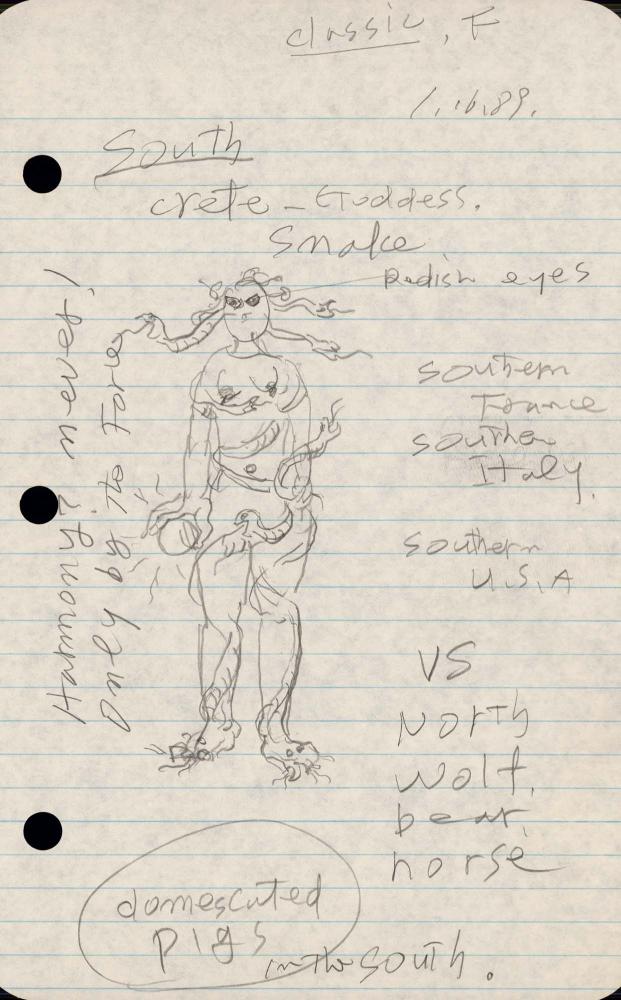 classic, F
1.16.89.
South
Crete - Goddess.
Snake
Redish eyes
Southern
France
Southern
Italy.
Southern
U.S.A
VS
North
Wolf.
bear.
horse
domescated
pigs
in the South.